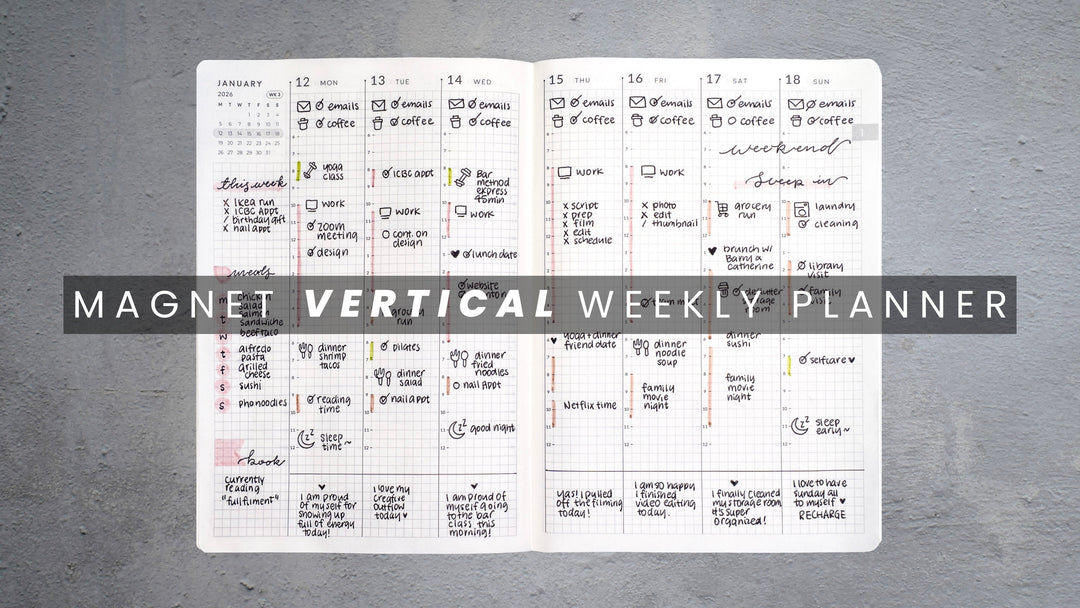 JANUARY
2026
WK 3
M T W T F S S
1 2 3 4
5 6 7 8 9 10 11
12 13 14 15 16 17 18
19 20 21 22 23 24 25
26 27 28 29 30 31
this week
x Ikea run
x ICBC Appt
/ birthday gift
x nail appt
meals
m chicken
salad
t salmon
sandwiche
w beef taco
t alfredo
pasta
f grilled
cheese
s sushi
s pho noodles
book
currently
reading
"fullfilment"
12 MON
emails
coffee
yoga
class
work
zoom
meeting
design
dinner
shrimp
tacos
reading
time
sleep
time~
I am proud
of myself for
showing up
full of energy
today!
13 TUE
emails
coffee
ICBC appt
work
cont. on
design
grocery
run
pilates
dinner
salad
nail appt
I love my
creative
outflow
today ♥
14 WED
emails
coffee
Bar
method
express
45min
work
♥ lunch date
website
dinner
fried
noodles
nail Appt
good night
I am proud of
myself going
to the bar
class this
morning!
15 THU
emails
coffee
work
x script
x prep
x film
x edit
x schedule
yoga + dinner
friend date
Netflix time
Yas! I pulled
off the filming
today!
16 FRI
emails
coffee
work
x photo
x edit
/ thumbnail
dinner
noodle
soup
family
movie
night
I am so happy
I finished
video editing
today.
17 SAT
emails
coffee
weekend
grocery
run
♥ brunch w/
Barry &
catherine
declutter
storage
room
dinner
sushi
family
movie
night
I finally cleaned
my storage room
it's super
organized!
18 SUN
emails
coffee
1
sleep in
laundry
cleaning
library
visit
family
visit
selfcare ♥
sleep
early~
I love to have
sunday all
to myself ♥
RECHARGE
MAGNET VERTICAL WEEKLY PLANNER